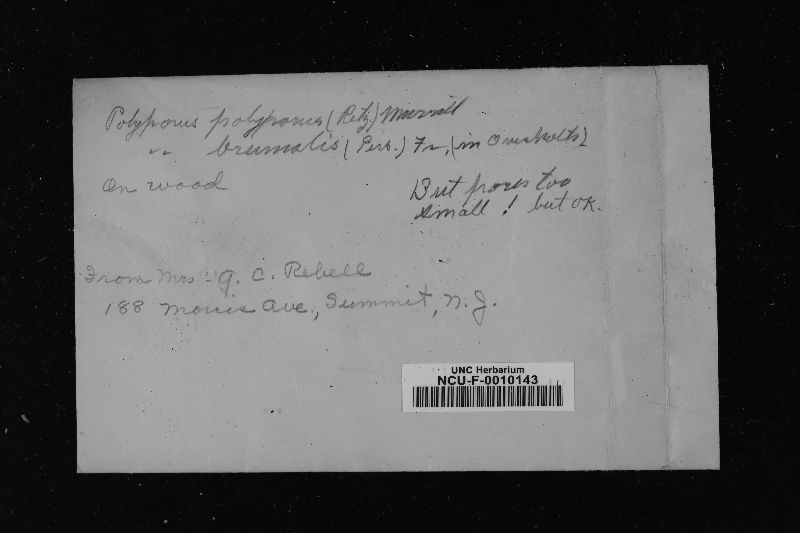 Polyporus polyporus (Retz) Murrill
" brumalis (Pers.) Fr, (in Overholts)
On wood
But pores too
small ! but OK.
From Mrs - G. C. Rebell
188 Morris Ave., Summit, N. J.
UNC Herbarium
NCU-F-0010143